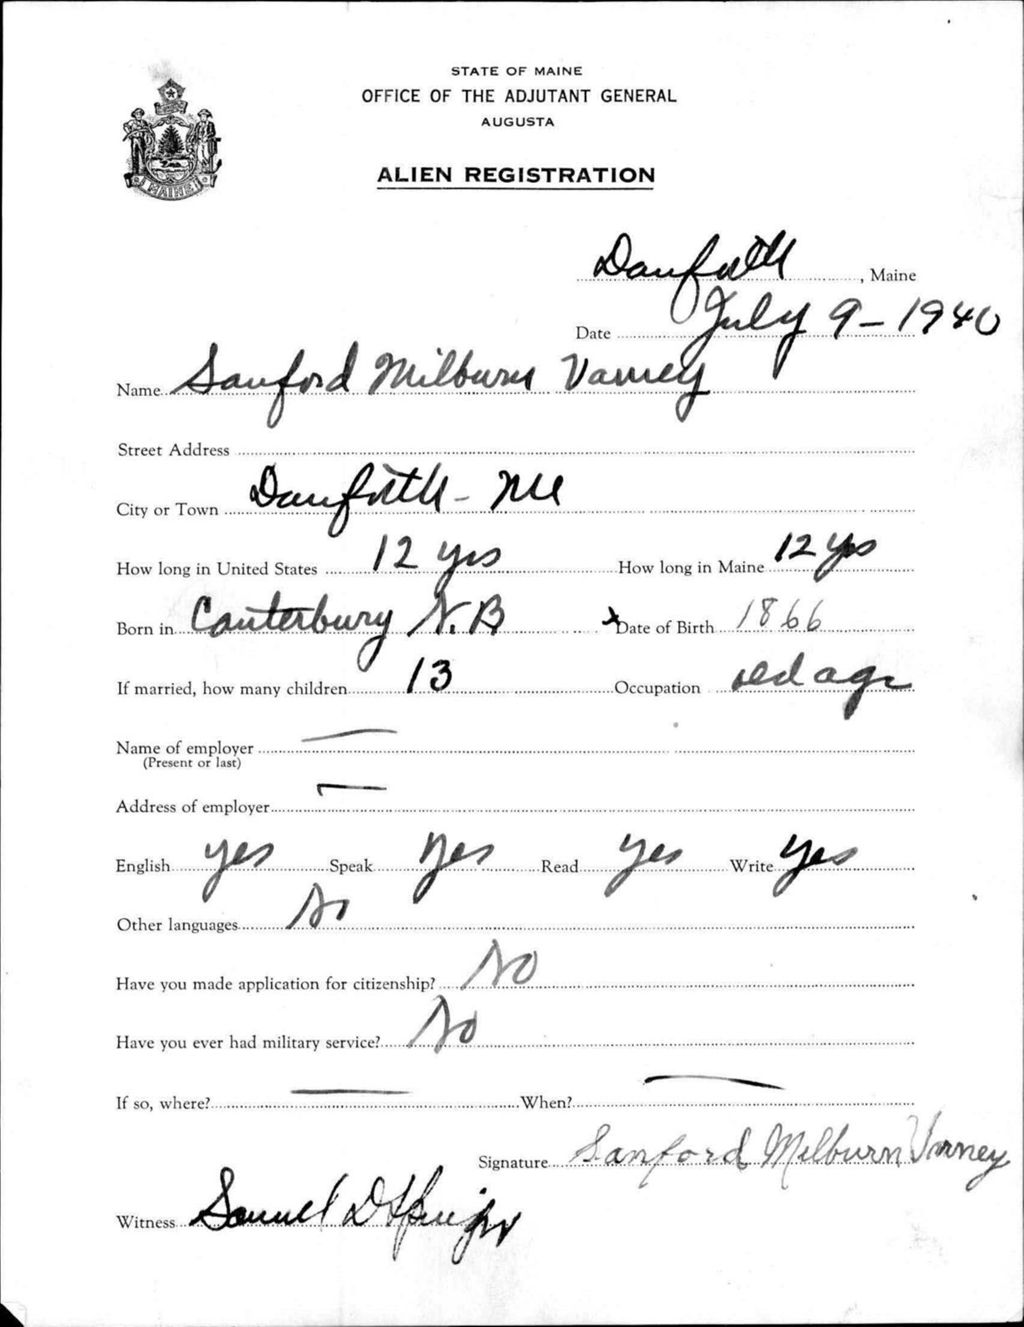 STATE OF MAINE
OFFICE OF THE ADJUTANT GENERAL
AUGUSTA
ALIEN REGISTRATION
MAINE
Danforth, Maine
Date July 9 - 1940
Name Sanford Milburn Varney
Street Address
City or Town Danforth - Me
How long in United States 12 yrs How long in Maine 12 yrs
Born in Canterbury N.B x Date of Birth 1866
If married, how many children 13 Occupation old age
Name of employer —
(Present or last)
Address of employer —
English yes Speak yes Read yes Write yes
Other languages No
Have you made application for citizenship? No
Have you ever had military service? No
If so, where? — When? —
Signature Sanford Milburn Varney
Witness Samuel D